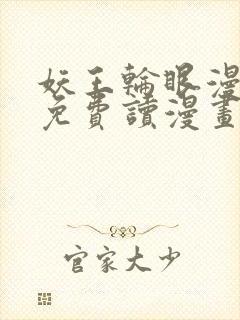 妖王輪眼漫
免費讀漫畫
官家大少